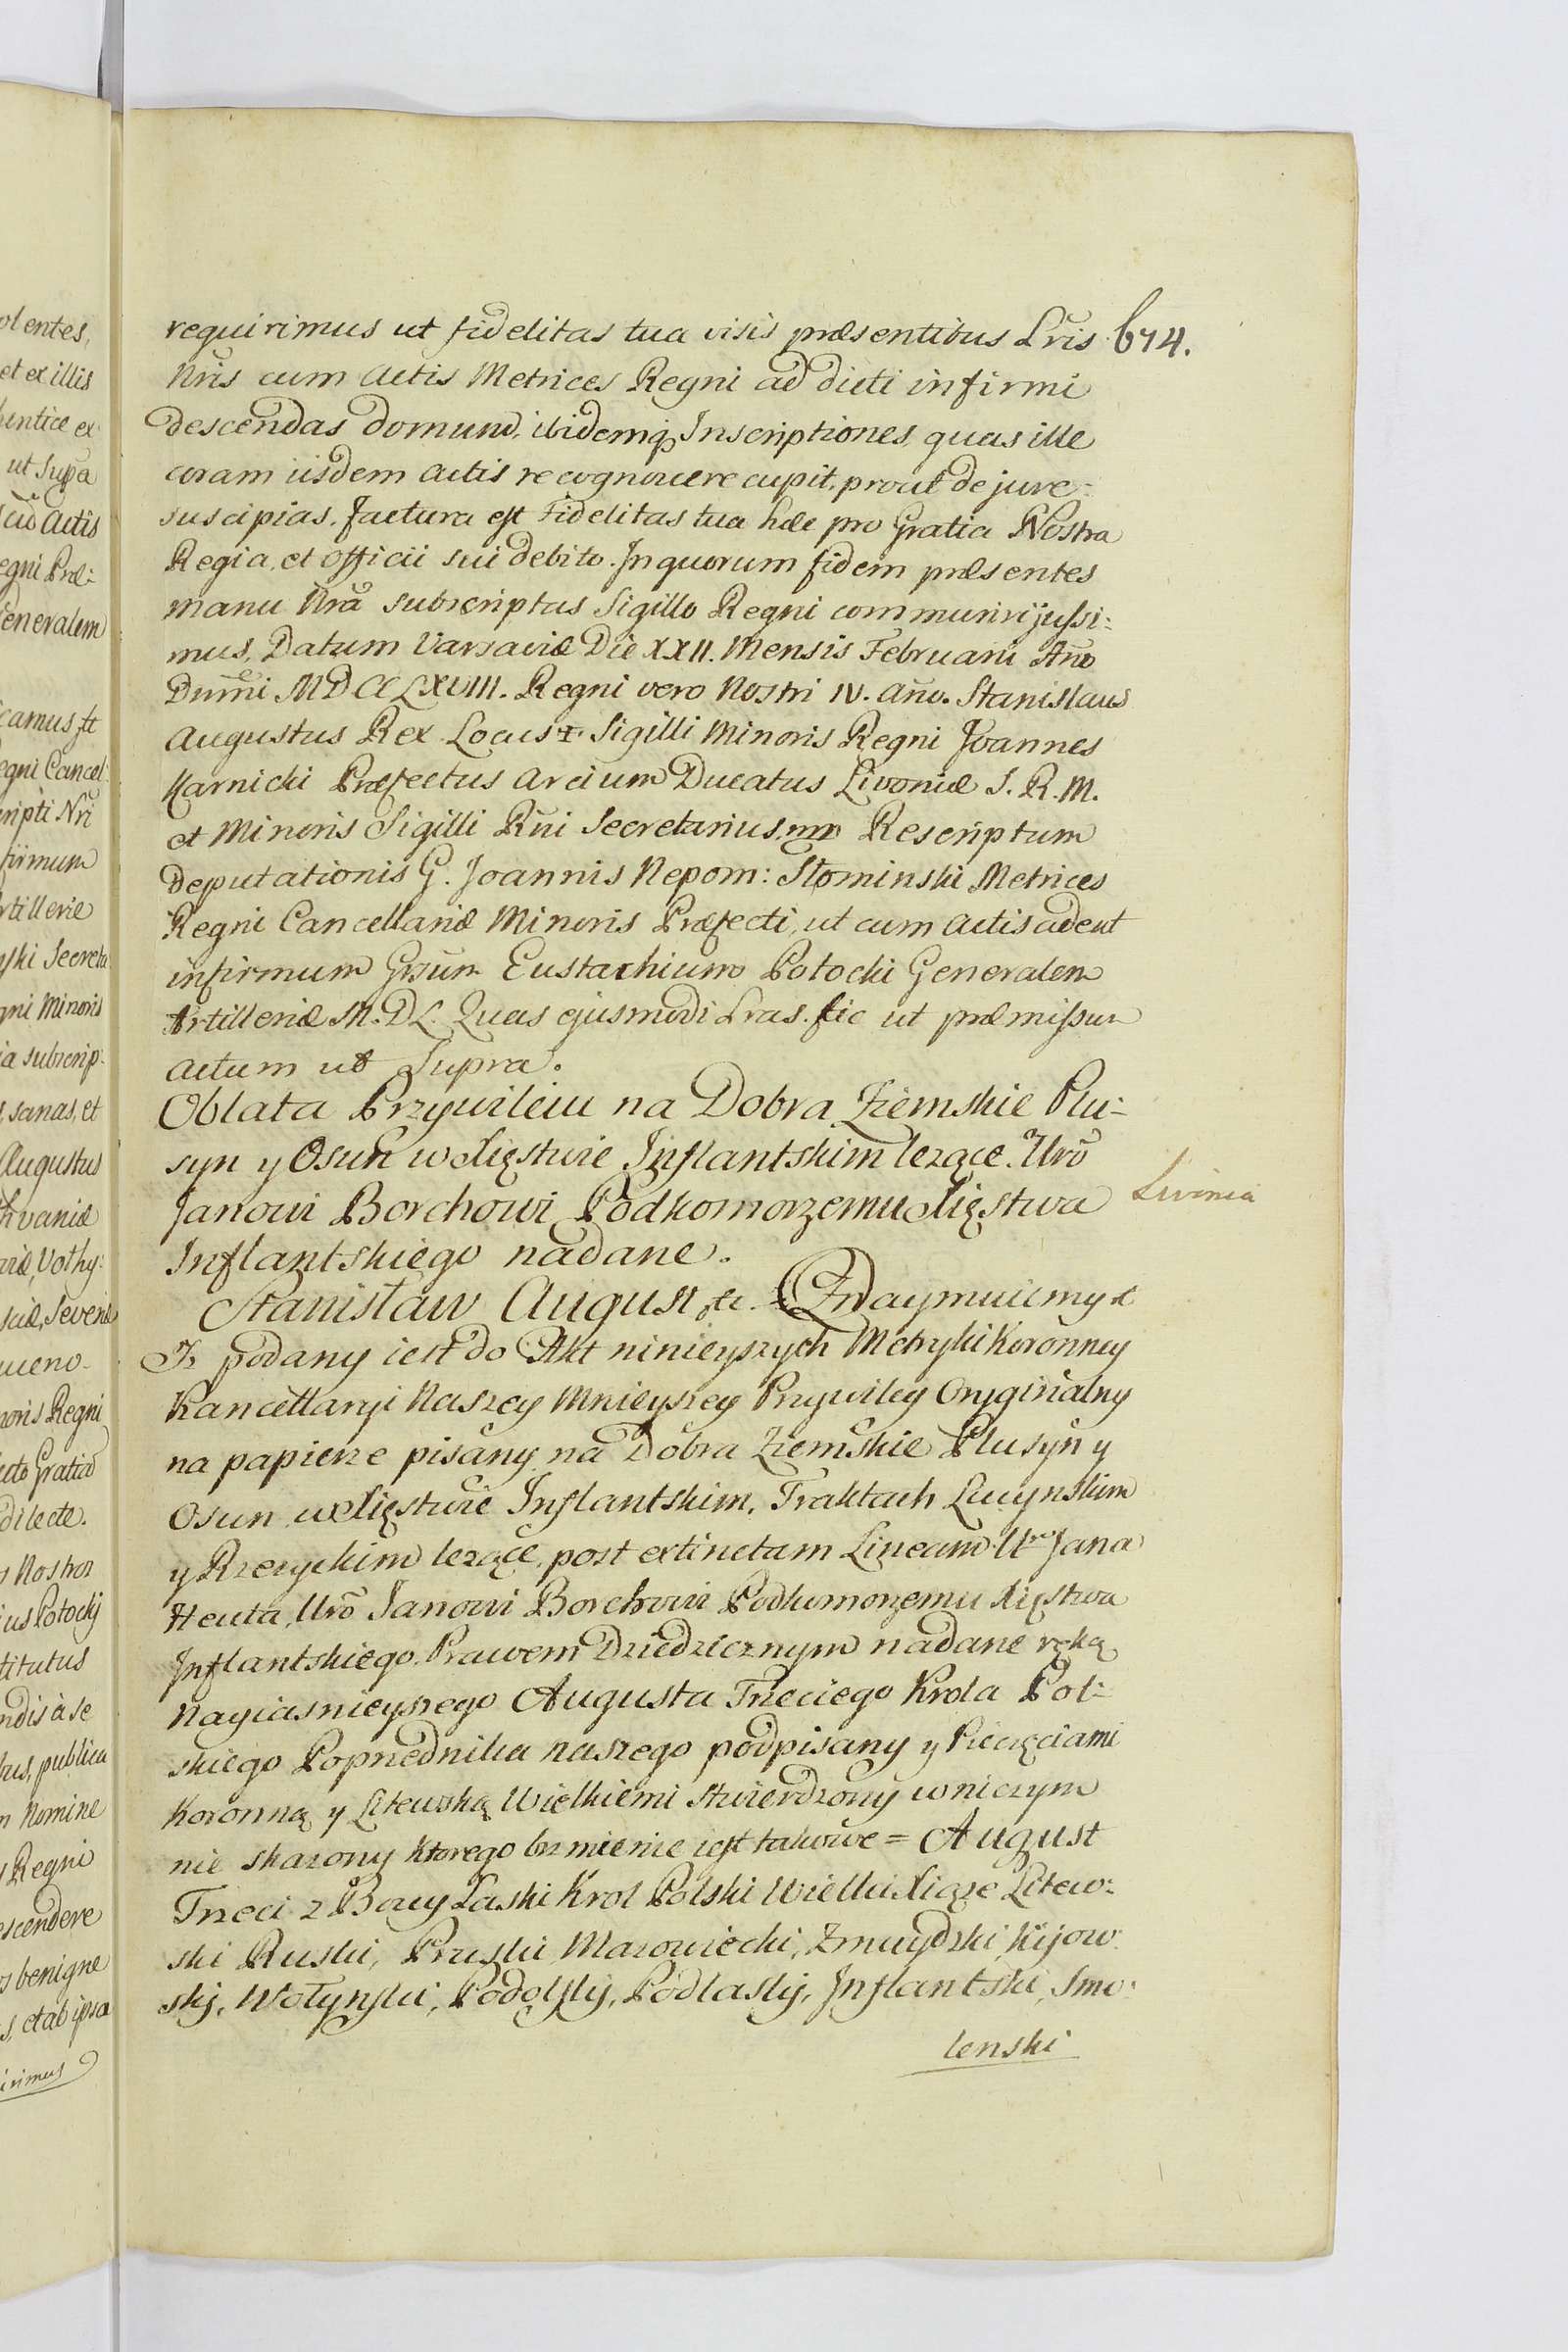 requirimus ut fidelitas tua visis præsentibus Lris
674.
Nris cum Actis Metrices Regni ad dicti infirmi
descendas domum, ibidemq Inscriptiones, quas ille
coram iisdem Actis recognoscere cupit, prout de jure
suscipias. factura est Fidelitas tua hæc pro Gratia Nostra
Regia, et Officii sui debito. In quorum fidem præsentes
manu Nra subscriptas Sigillo Regni communiri jussi:
mus. Datum Varsaviæ Die XXII. Mensis Februarii Ano
Dumni MDCCLXVIII. Regni vero Nostri IV. año. Stanislaus
Augustus Rex Locus Sigilli Minoris Regni Joannes
Karnicki Præfectus Arcium Ducatus Livoniæ S. R. M.
et Minoris Sigilli Rni Secretarius mp Rescriptum
deputationis G. Joannis Nepom: Słominski Metrices
Regni Cancellariæ Minoris Præfecti, ut cum Actis adeat
infirmum Gsum Eustachium Potocki Generalem
Artilleriæ M. D L. Quas ejusmodi Lras. sic ut præmissum
Actum ut Supra.
Oblata Przywileiu na Dobra Ziemskie Plu:
syn y Osuń w Xięstwie Inflantskim lezące. Uro
Janowi Borchowi Podkomorzemu Xięstwa
Livinia
Inflantskiego nadane.
Stanisław August &c. Oznaymuiemy &
Iz podany iest do Akt ninieyszych Metryki Koronney
Kancellaryi Naszey Mnieyszey Przywiley Oryginalny
na papierze pisany na Dobra Ziemskie Plusyn y
Osun w Xięstwie Inflantskim, Traktach Lucynskim
y Rzezyckim lezące, post extinctam Lineam Ur Jana
Heuta, Uro Janowi Borchowi Podkomorzemu Xięstwa
Inflantskiego Prawem Dziedzicznym nadane ręką
Nayiasnieyszego Augusta Trzeciego Krola Pol:
skiego Poprzednika naszego podpisany y Pieczęciami
Koronną y Litewską Wielkiemi stwierdzony w niczym
nie skazony ktorego brzmienie iest takowe = August
Trzeci z Bozey Łaski Krol Polski Wielki Xiąze Litew:
ski Ruski, Pruski Mazowiecki, Zmuydzki Kijow:
skj, Wołynski, Podolskj, Podlaskj, Inflantski, Smo:
lenski